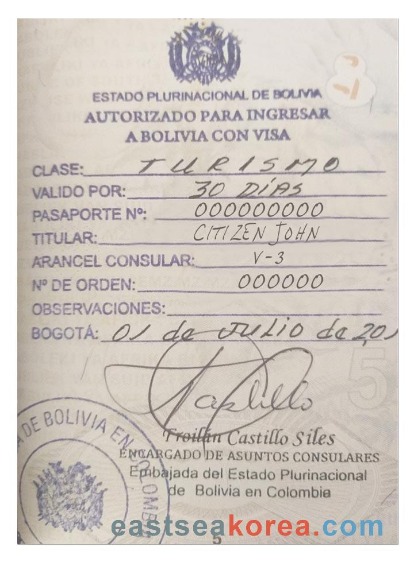 ESTADO PLURINACIONAL DE BOLIVIA
AUTORIZADO PARA INGRESAR
A BOLIVIA CON VISA
CLASE: TURISMO
VALIDO POR: 30 DÍAS
PASAPORTE Nº: 000000000
TITULAR: CITIZEN JOHN
ARANCEL CONSULAR: V-3
Nº DE ORDEN: 000000
OBSERVACIONES:
BOGOTÁ: 01 de JULIO de 201
Castillo
Froilán Castillo Siles
ENCARGADO DE ASUNTOS CONSULARES
Embajada del Estado Plurinacional
de Bolivia en Colombia
DE BOLIVIA EN COLOMB
eastseakorea.com
5